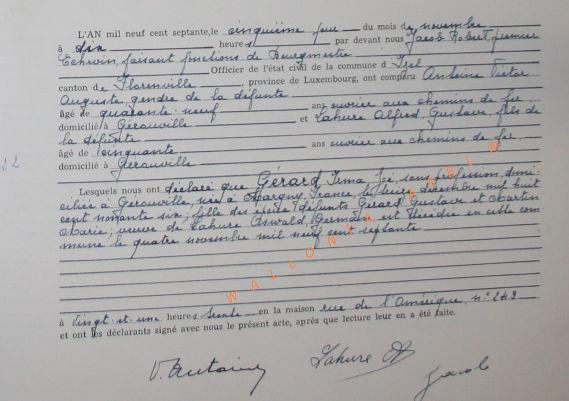 L'AN mil neuf cent septante, le cinquième jour du mois de novembre
à dix heures par devant nous Jacob Robert, premier
Echevin, faisant fonctions de Bourgmestre
Officier de l'état civil de la commune d Izel
canton de Florenville, province de Luxembourg, ont comparu Antoine Victor
Auguste, gendre de la défunte
âgé de quarante-neuf ans ouvrier aux chemins de fer
domicilié à Gérouville et Lahure Alfred, Gustave, fils de
la défunte
âgé de cinquante ans ouvrier aux chemins de fer
domicilié à Gérouville
Lesquels nous ont déclaré que Gérard Irma, sans profession, domi-
ciliée à Gérouville, née à Margny, France, le novembre mil huit
cent nonante six; fille des époux défunts Gérard Gustave et Martin
Marie; veuve de Lahure Oswald, Germain est décédée en cette com
mune le quatre novembre mil neuf cent septante
à Vingt et une heures trente en la maison rue de l'Amérique, n° 249
et ont les déclarants signé avec nous le présent acte, après que lecture leur en a été faite.
V. Antoine Lahure A Jacob
WALLONIA